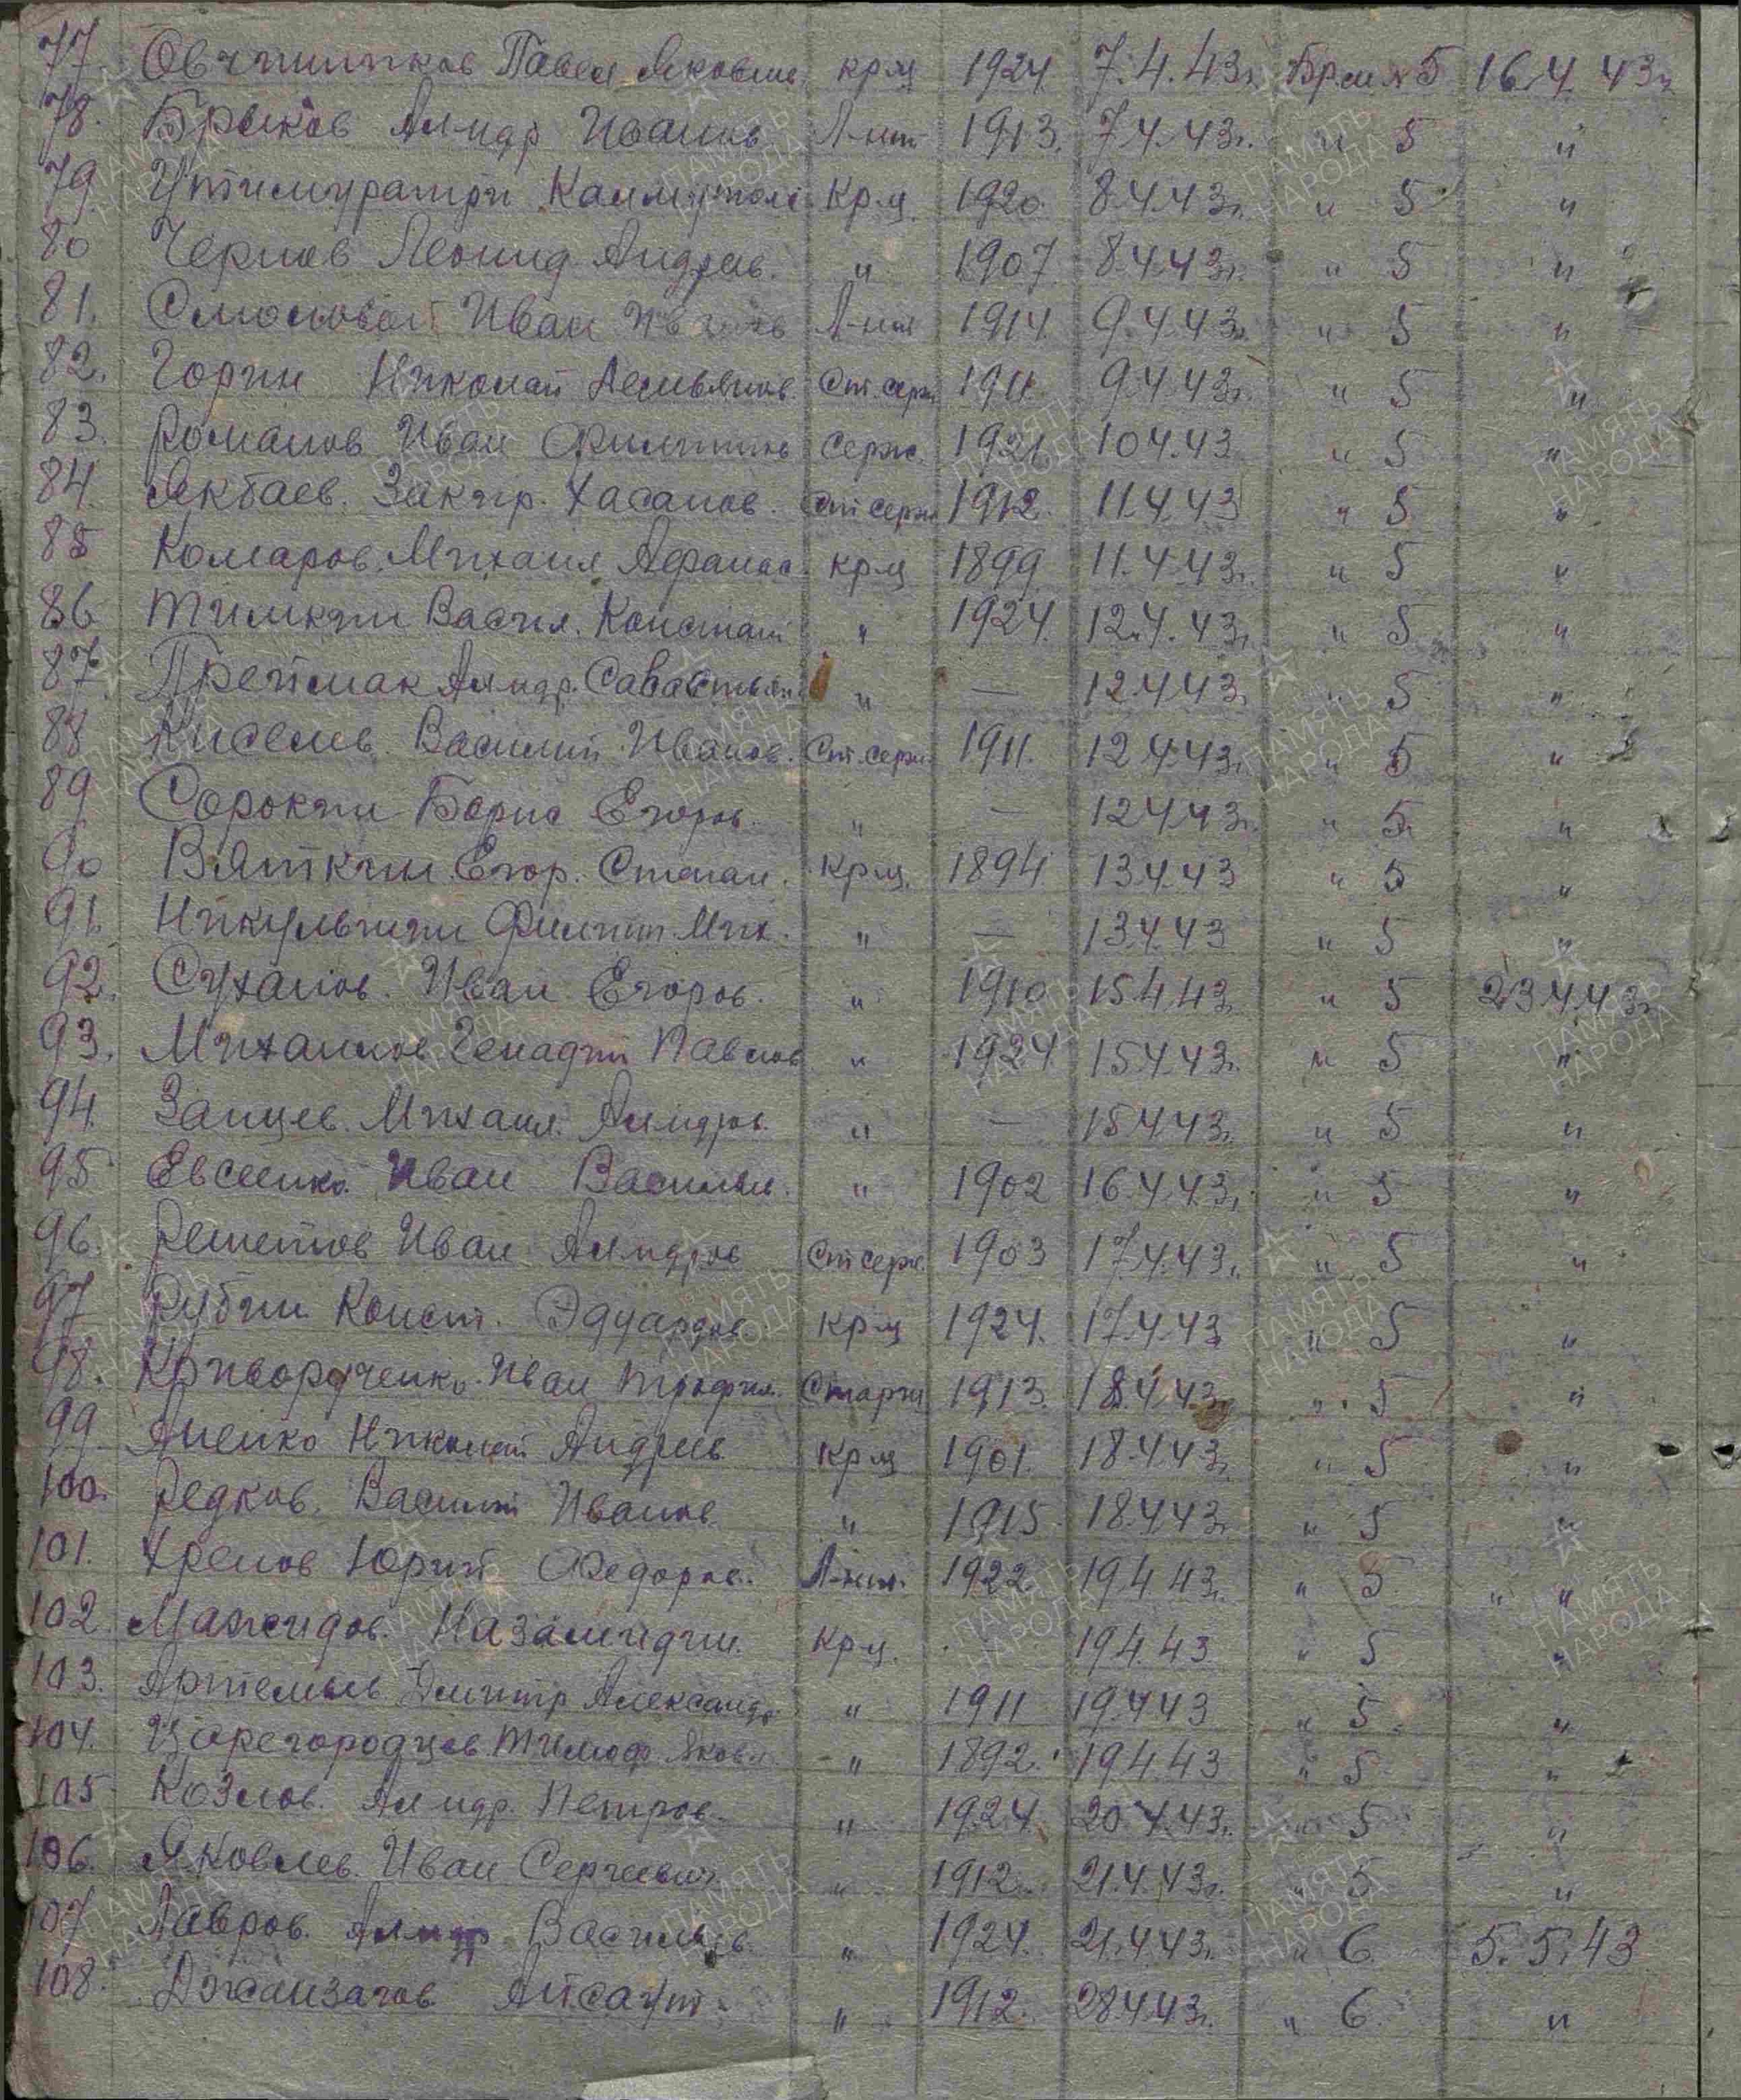 77. Овчинников Павел Яковлев. кр-ц 1924 7.4.43г. Бр.м. №5 16.4.43г
78. Брыков Ал-ндр Иванов. Л-нт 1913. 7.4.43г. " 5 "
79. Каммулом Кр-ц. 1920 8.4.43г. " 5 "
80 Чернов Леонид Андреев. " 1907 8.4.43г. " 5 "
81. Иван Иванов Л-нт 1914. 9.4.43г. " 5 "
82. Горин Николай Демьянов. Ст. серж 1911. 9.4.43г. " 5 "
83. Романов Иван Филиппов Серж. 1921 10.4.43 " 5 "
84. Якбаев. Закир. Хасанов. Ст серж 1912. 11.4.43 " 5 "
85 Комаров. Михаил Афанас. кр-ц 1899 11.4.43г. " 5 "
86 Тимкин Васил. Констант " 1924. 12.4.43г. " 5 "
87. Ал-ндр. Савастьян. " — 12.4.43г. " 5 "
88 Киселев. Василий Иванов. Ст. серж. 1911. 12.4.43г. " 5 "
89 Сорокин Борис Егоров. " — 12.4.43г. " 5. "
90 Вяткин Егор. Степан. Кр-ц. 1894 13.4.43 " 5 "
91. Никульшин Филипп Мих. " — 13.4.43 " 5 "
92. Суханов. Иван Егоров. " 1910 15.4.43г. " 5 23.4.43г
93. Михайлов Генадий Павлов " 1924 15.4.43г. " 5 "
94. Зайцев. Михаил. Ал-ндров. " — 15.4.43г. " 5 "
95 Евсеенко Иван Васильев. " 1902 16.4.43г. " 5 "
96. Решетов Иван Ал-ндров Ст серж. 1903 17.4.43г. " 5 "
97 Рубин Конст. Эдуардов кр-ц 1924. 17.4.43 " 5 "
98. Криворученко. Иван Трофим. Старш 1913. 18.4.43г " 5 "
99 Яненко Николай Андреев кр-ц 1901. 18.4.43г. " 5 "
100. Редков. Василий Иванов " 1915 18.4.43г. " 5 "
101. Хренов Юрий Федоров. Л-нт. 1922 19.4.43г. " 5 " "
102. Мажидов. Назамидин. Кр-ц. 19.4.43 " 5 "
103. Артемьев Дмитр Александр " 1911 19.4.43 " 5 "
104. Царегородцев Тимоф. Яковл. " 1892. 19.4.43 " 5 "
105 Козлов. Ал-ндр. Петров. " 1924. 20.4.43г. " 5 "
106. Яковлев. Иван Сергеевич " 1912 21.4.43г. " 5 "
107 Лавров. Ал-ндр Васильев. " 1924. 21.4.43г. " 6 5.5.43
108. " 1912. 28.4.43г. " 6 "